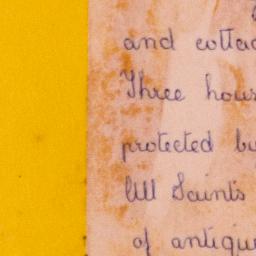 and cottag
Three hous
protected by
All Saints
of antique